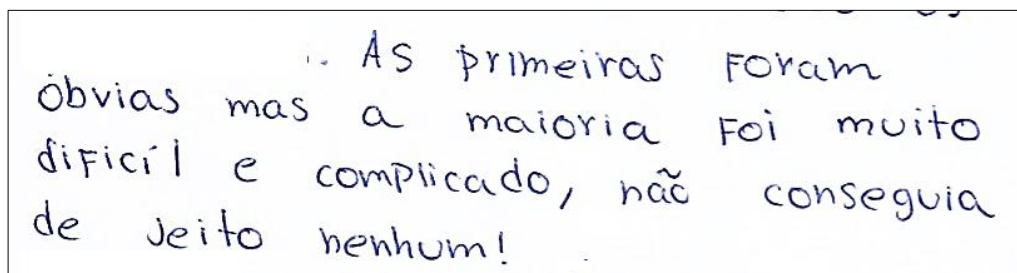 . As primeiras foram
óbvias mas a maioria foi muito
dificíl e complicado, não conseguia
de jeito nenhum!